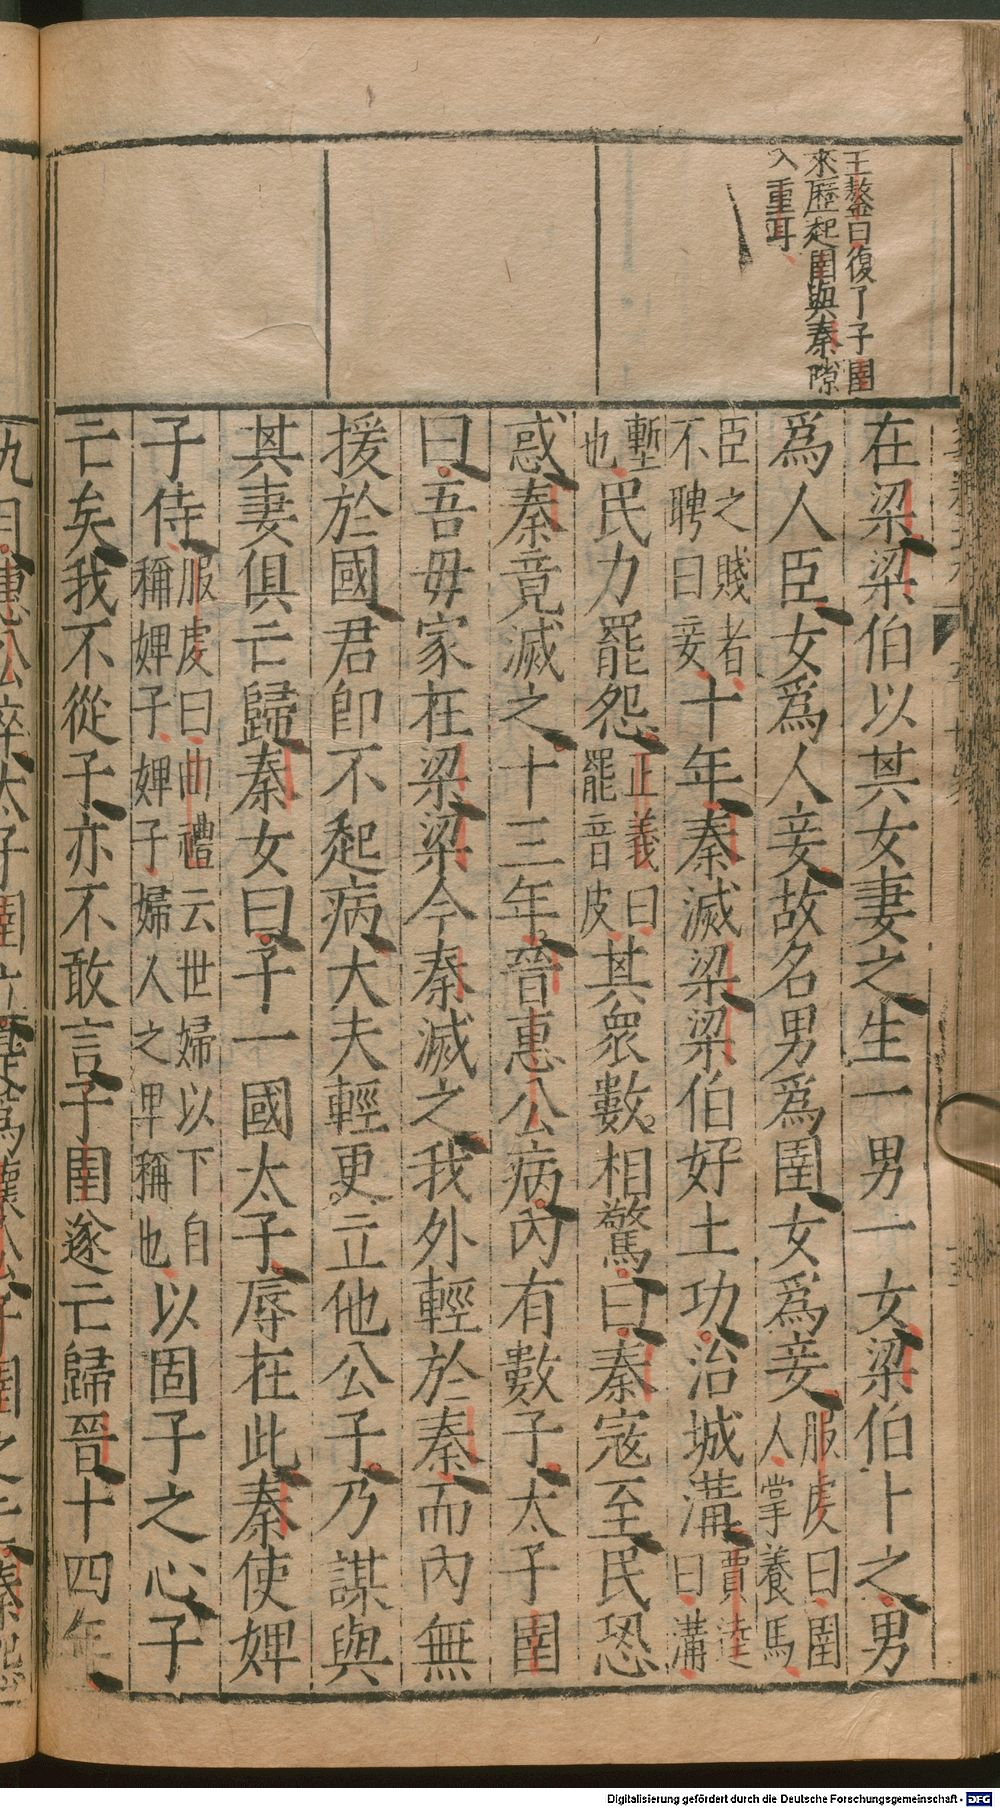 王鏊曰復了子圉
來歷起圉與秦隙
入重耳
在梁梁伯以其女妻之生一男一女梁伯卜之男
爲人臣女爲人妾故名男爲圉女爲妾服虔曰圉人掌養馬
臣之賤者不聘曰妾十年秦滅梁梁伯好土功治城溝賈逵曰溝
塹也民力罷怨正義曰罷音皮其衆數相驚曰秦寇至民恐
惑秦竟滅之十三年晉惠公病內有數子太子圉
曰吾毋家在梁梁今秦滅之我外輕於秦而內無
援於國君卽不起病大夫輕更立他公子乃謀與
其妻俱亡歸秦女曰子一國太子辱在此秦使婢
子侍服虔曰曲禮云世婦以下自稱婢子婢子婦人之卑稱也以固子之心子
亡矣我不從子亦不敢言子圉遂亡歸晉十四年
Digitalisierung gefördert durch die Deutsche Forschungsgemeinschaft - DFG